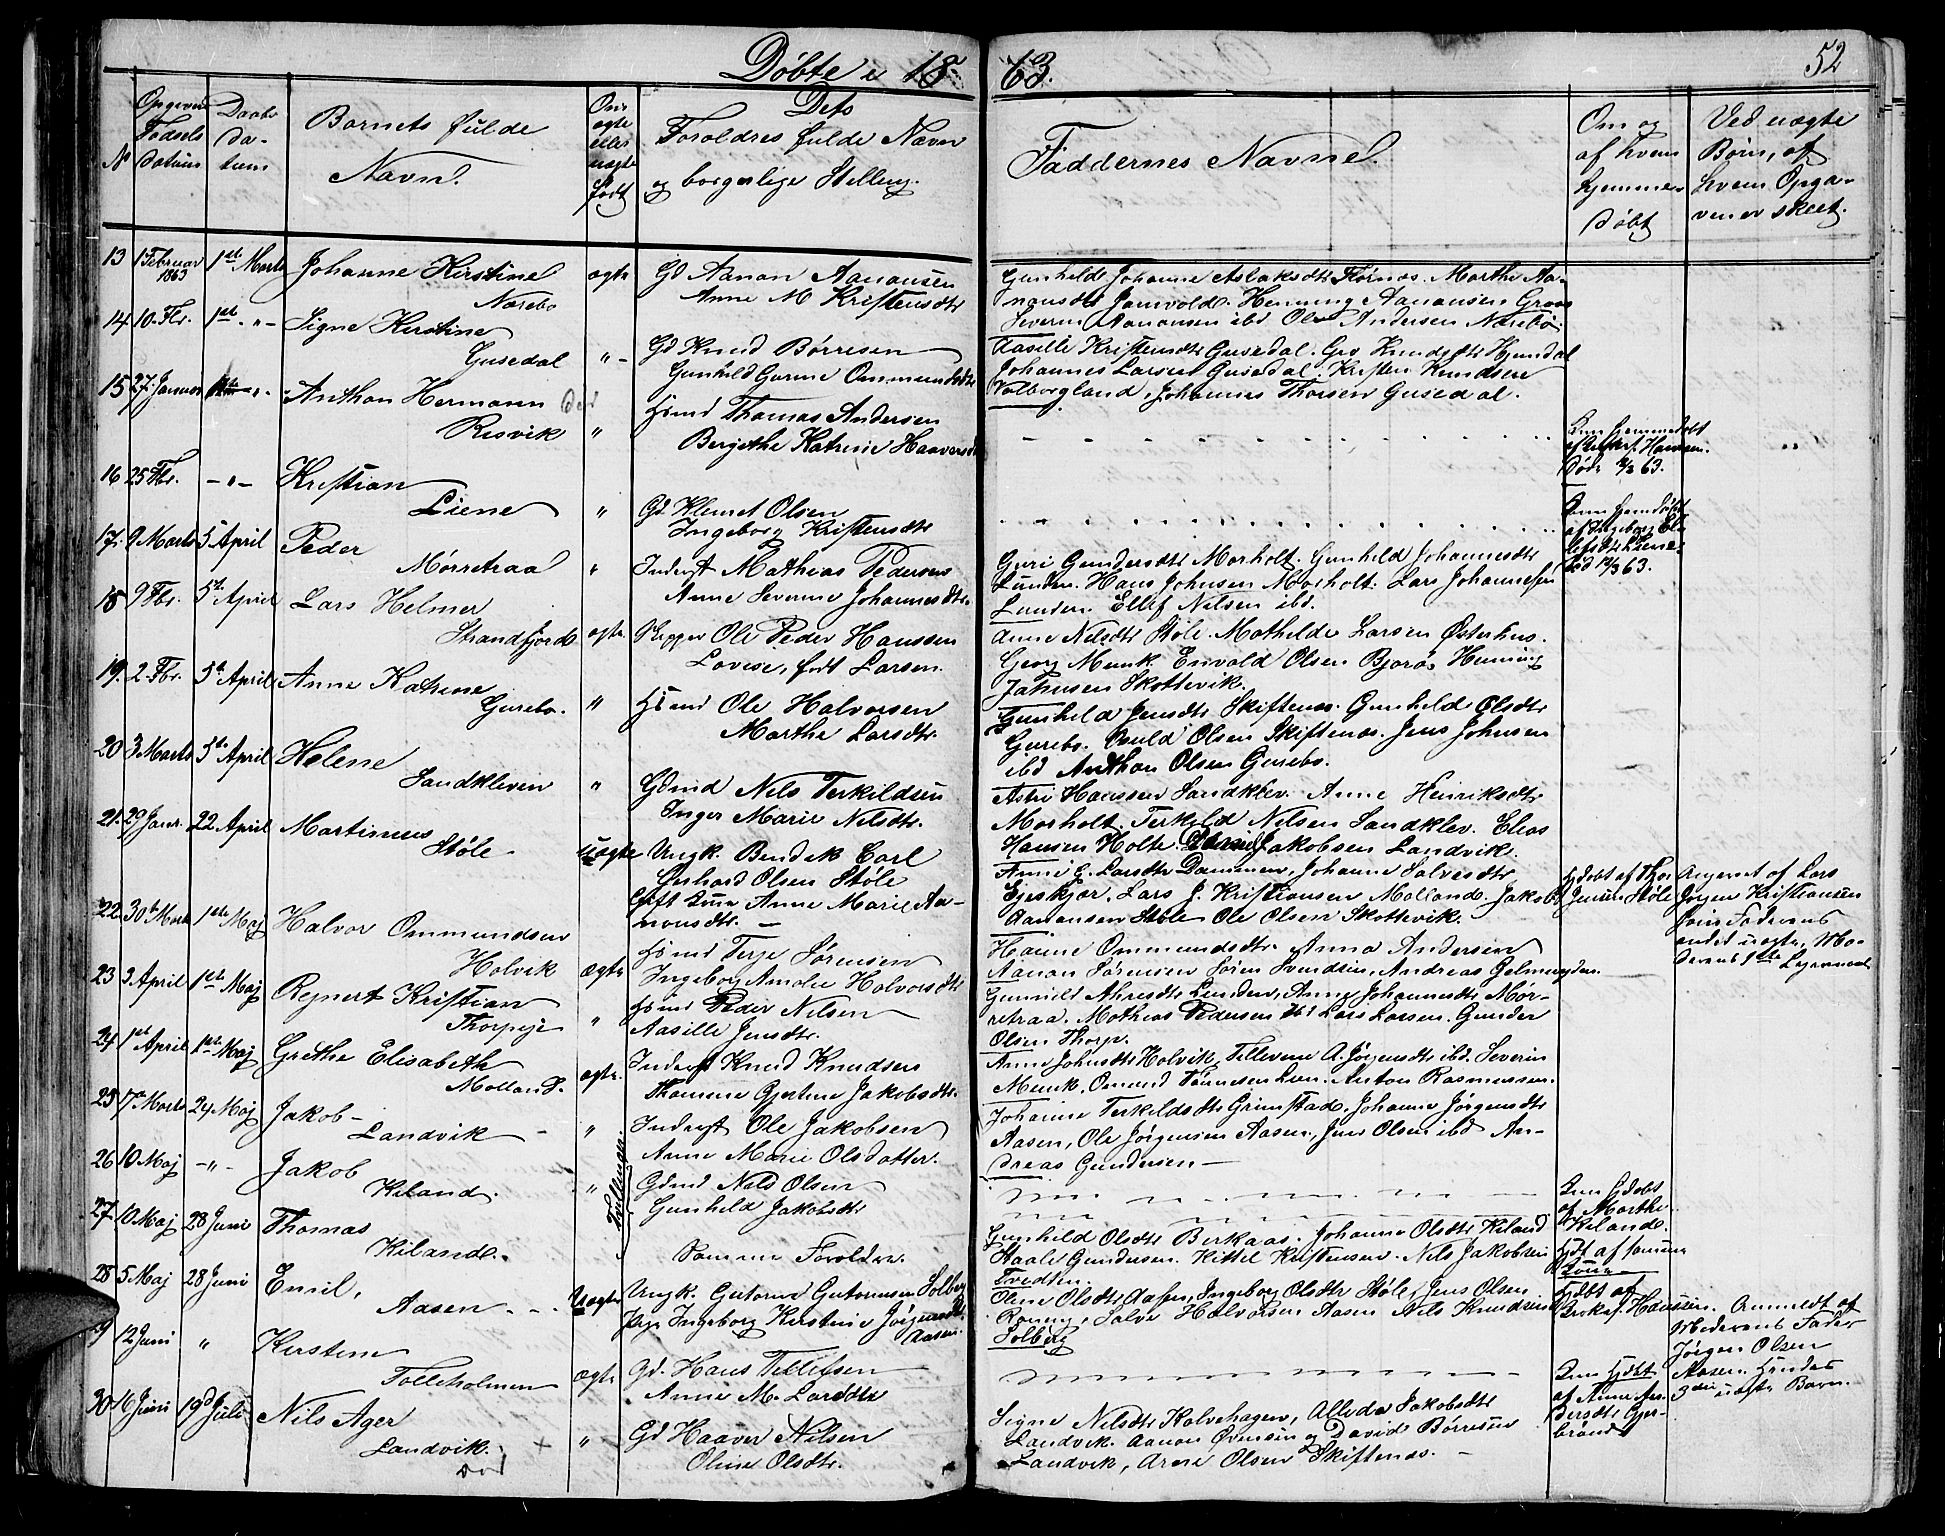 Døbte i 1863.
52
No
Opgivne Fødsels Datum
Daabs Datum
Barnets fulde Navn.
Om ægte eller uægte født
Dets Forældres fulde Navn og borgerlige Stilling.
Faddernes Navne.
Om og af hvem hjemmedøbt
Ved uægte Børn, af hvem Opgaven er skeet.
13 1 Februar 1863 1st Marts Johanne Kirstine Nærebø ægte Gd Aanon Aanonsen
Anne M Kristensdtr
Gunhild Johanne Aslaksdtr Marthe Aanonsdtr Henning Aanonsen Groos
Severin Aanonsen ibd Ole Andersen Nærebø
14 10. Fbr. 1st -"- Signe Kirstine Gusedal "- Gd Knud Børresen
Gunhild Gurine Ommundsdtr
Aasille Kristensdtr Gusedal.
Johannes Larsen Gusedal. Kristen Knudsen
Volborgland, Johannes Thorsen Gusedal.
15 27. Januar Anthon Hermann død Resvik " Hsmd Thomas Andersen
Bergithe Katrine Haaversdtr
Kun hjemmedøbt
Hansen.
Døde 63.
16 25 Fbr. -"- Kristian Liene " Gd Klemet Olsen
Ingeborg Kristensdtr
Kun hjemdøbt
af Ingeborg
død 63.
17. 9 Marts 5 April Peder Mørretraa " Inderst Mathias Pedersen
Anne Severine Johannesdtr.
Guri Gundersdtr Morholt. Gunhild Johannesdtr
Lunden. Hans Johnsen Morholt. Lars Johannesen
Lunden. Ellef Nilsen ibd.
18 9 Fbr. 5te April Lars Helmer Strandfjord ægte. Skipper Ole Peder Hanssen
Lovise, født Larsen.
Anne Nilsdtr Støle. Mathilde Larsen Østerhus.
Georg Munk. Envold Olsen Bjorøs Henning
Jahnsen Skottevik.
19. 2. Fbr. 5te April Anne Katrine Gurebo. " Hsmd Ole Halvorsen
Marthe Larsdtr.
Gunhild Jensdtr Skiftenæs. Gunhild Olsdtr
Gurebo. Olsen Skiftenæs. Jens Johnsen
ibd Anthon Olsen Gurebo.
20 3 Marts 5te April Helene Sandkleven " Gdmd Nils Terkildsen
Inger Marie Nilsdtr.
Astri Hanssen Sandklev. Anne Henriksdtr
Morholt. Terkild Nilsen Sandklev. Elias
Hansen Holte. Jakobsen Landvik.
21. 29 Janr. 22 April Martinius Støle. uægte Ungk. Bendik Carl
Gerhard Olsen Støle
Gift Kone Anne Marie Aamonsdtr. —
Anne G. Larsdtr Dammen, Johanne Salvesdtr
Egeskjær. Lars J. Kristiansen Molland. Jakob
Aanonsen Støle Ole Olsen Skottevik.
Hjdøbt af Thor
Jensen Støle
Angivet af Lars
Jørgen Kristiansen
Faderens
andet uægte, Moderens 1ste Leiermaal
22 30te Marts 1ste Maj Halvor Ommundsen Holvik ægte Hsmd Terje Sørensen
Ingeborg Amalie Holvorsdtr
Hanne Ommundsdtr. Anna Andersen
Aanon Sørensen Søren Svendsen, Andreas
23 3 April 1ste Maj Reinert Kristian Thorpeje " Hsmd Peder Nilsen
Aasille Jensdtr.
Gunnild Ahresdtr Lunden, Anne Johannesdtr Mørretraa. Mathias Pedersen ibd Lars Larsen. Gunder
Olsen Thorp.
24 1st April 1ste Maj Grethe Elisabeth Molland. ægte. Inderst Knud Knudsen
Thomine Gjertine Jakobsdtr.
Anne Johnsdtr Holvik, Tellevine A. Jørgensdtr ibd. Severin
Munk. Omund Tønnesen Lien. Anton Rasmussen.
25 7de Marts 24 Maj Jakob — Landvik — " Inderst Ole Jakobsen
Anne Marie Olsdatter.
Johanne Terkildsdtr Grimstad. Johanne Jørgensdtr
Aasen, Ole Jørgensen Aasen, Jens Olsen ibd Andreas Gundersen —
26 10 Maj -"- Jakob Kiland. " Gdmd Nils Olsen
Gunhild Jakobsdtr
Tvillinger
Kun Hjdøbt
af Marthe
Kiland.
27 10 Maj 28 Juni Thomas Kiland. Samme Forældre.
Gunhild Olsdtr Birkaas. Johanne Olsdtr Kiland
Staale Gundersen. Kittel Kristensen. Nils Jakobsen
Tvedten.
Hjdt af samme
Kone
28 5 Maj 28 Juni Emil, Aasen — uægte Ungk. Guttorm Guttormsen Solberg
Pige Ingeborg Kirstine Jørgensdtr Aasen
Oline Olsdtr Aasen, Ingeborg Olsdtr Støle, Jens Olsen
Salve Halvorsen Aasen Nils Knudsen
Solberg
Hjdøbt af
Hanssen.
Anmeldt af
Moderens Fader
Jørgen Olsen
Aasen. Hendes
3die uægte Barn.
29 12 Juni " Kirstine Tolleholmen ægte Gd. Hans Tellefsen
Anne M. Larsdtr
Kun Hjdøbt
af Anne
30 16 Juni 19d Juli Nils Ager Landvik. død + " Gd Haaver Nilsen
Oline Olsdtr.
Signe Nilsdtr Kalvehagen, Jakobsdtr
Landvik. Aanon Øvensen og David Børresen
Landvik, Arne Olsen Skiftenæs. —